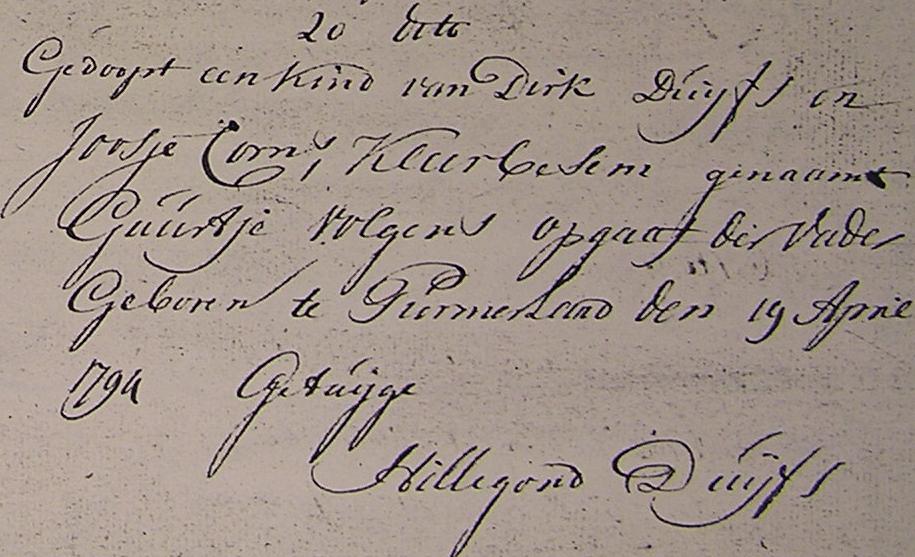 20 dito
Gedoopt een Kind van Dirk Duijfs en
Joosje Corns Klaerbesem genaamt
Guurtje volgens opgaaf der Vader
Geboren te Purmerland den 19 April
1794 Getuijge
Hillegond Duijfs